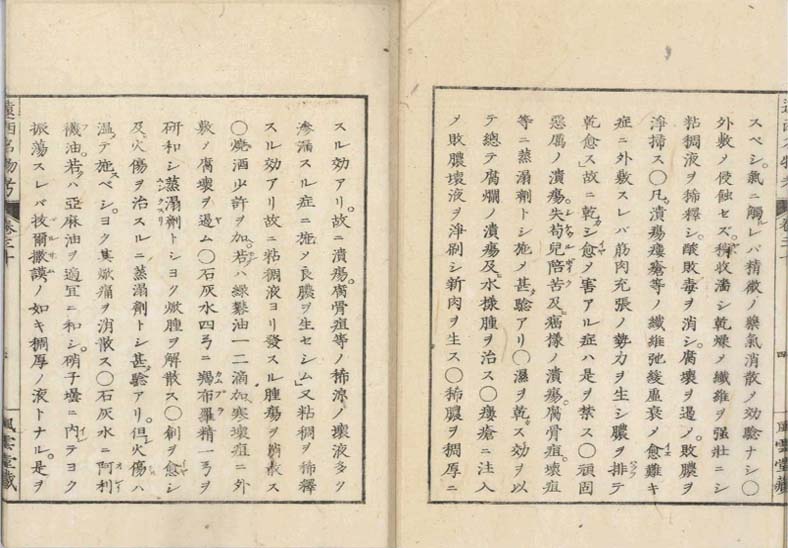 スベシ。氣ニ觸レバ精微ノ藥氣消散メ効驗ナシ〇
外敷メ侵蝕セズ。稍收濇シ乾燥メ纖維ヲ强壯ニシ
粘稠液ヲ稀釋シ。酸敗毒ヲ消シ。腐壞ヲ遏メ。敗膿ヲ
淨掃ス〇凡潰瘍瘻瘡等ノ纖維弛緩虛衰メ愈難キ
症ニ外敷スレバ筋肉充張ノ勢力ヲ生シ膿ヲ排テ
乾愈ス。故ニ乾シ愈メ害アル症ハ是ヲ禁ス〇頑固
惡厲ノ潰瘍。失苟兒陪苦及癌樣ノ潰瘍。腐骨疽壞疽
等ニ蒸溻劑トシ施メ甚驗アリ〇濕ヲ乾ス効ヲ以
テ總テ腐爛ノ潰瘍及水樣腫ヲ治ス〇瘻瘡ニ注入
メ敗膿壞液ヲ淨刷シ新肉ヲ生ス〇稀膿ヲ稠厚ニ
遠西名物考 卷三十 四 風雲堂藏
スル効アリ。故ニ潰瘍。腐骨疽等ノ稀涼ノ壞液多ク
滲漏スル症ニ施メ良膿ヲ生セシム」又粘稠ヲ稀釋
スル効アリ故ニ粘稠液ヨリ發スル腫瘍ヲ消散ス
〇燒酒少許ヲ加。若ハ綠礬油一二滴加寒壞疽ニ外
敷メ腐壞ヲ遏ム〇石灰水四弓ニ羯布羅精一弓ヲ
研和シ蒸溻劑トシヨク焮腫ヲ解散ス〇創ヲ愈シ
及火傷ヲ治スルニ蒸溻劑トシ甚驗アリ。但火傷ハ
溫テ施スベシ。ヨク其焮痛ヲ消散ス〇石灰水ニ阿利
襪油。若ハ亞麻油ヲ適宜ニ和シ。硝子壜ニ内テヨク
振蕩スレバ拔爾撒謨ノ如キ稠厚ノ液トナル。是ヲ